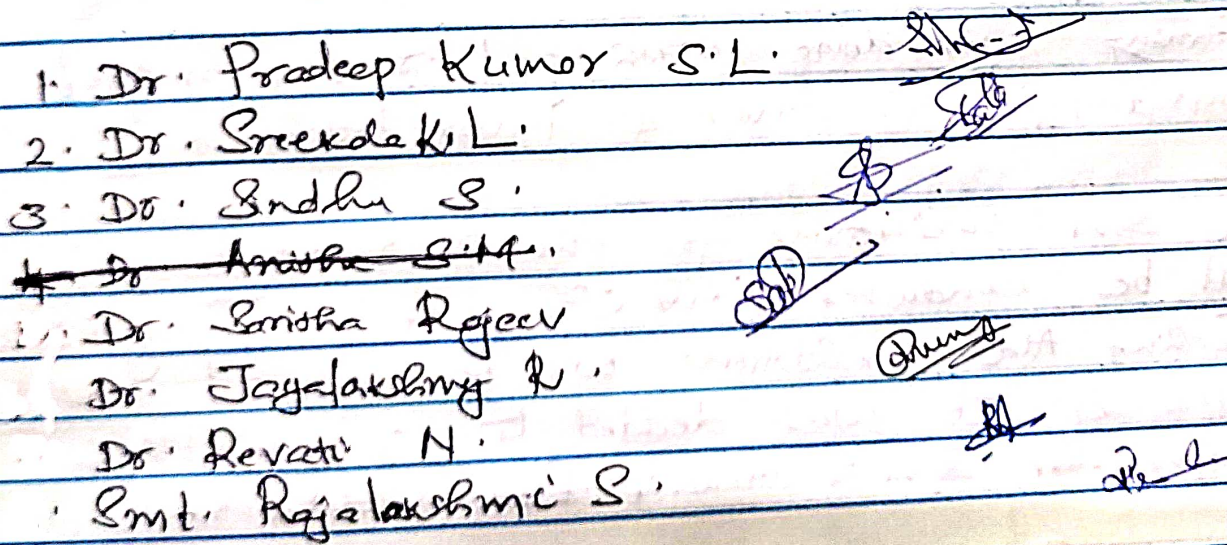 1. Dr. Pradeep Kumar S.L.
2. Dr. Sreekala K.L.
3. Dr. Sindhu S.
4. Dr Anisha S.M.
Dr. Sarisha Rajeev
Dr. Jayalakshmy R.
Dr. Revati N.
Smt. Rajalakshmi S.